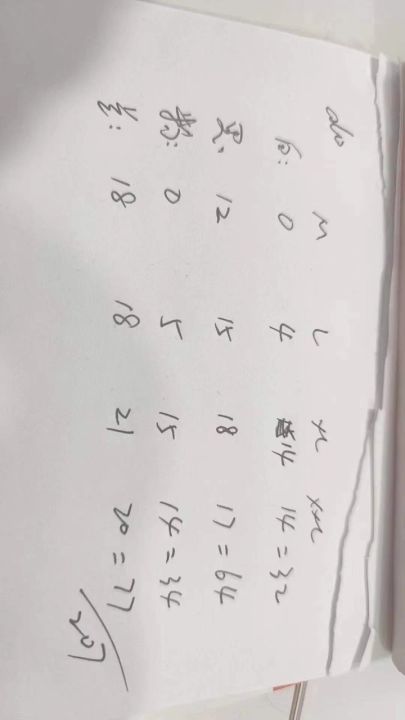 M L XL XXL
白: 0 4 14 14=32
黑、 12 15 18 17=64
0 5 15 14=34
兰: 18 18 21 20=77
207